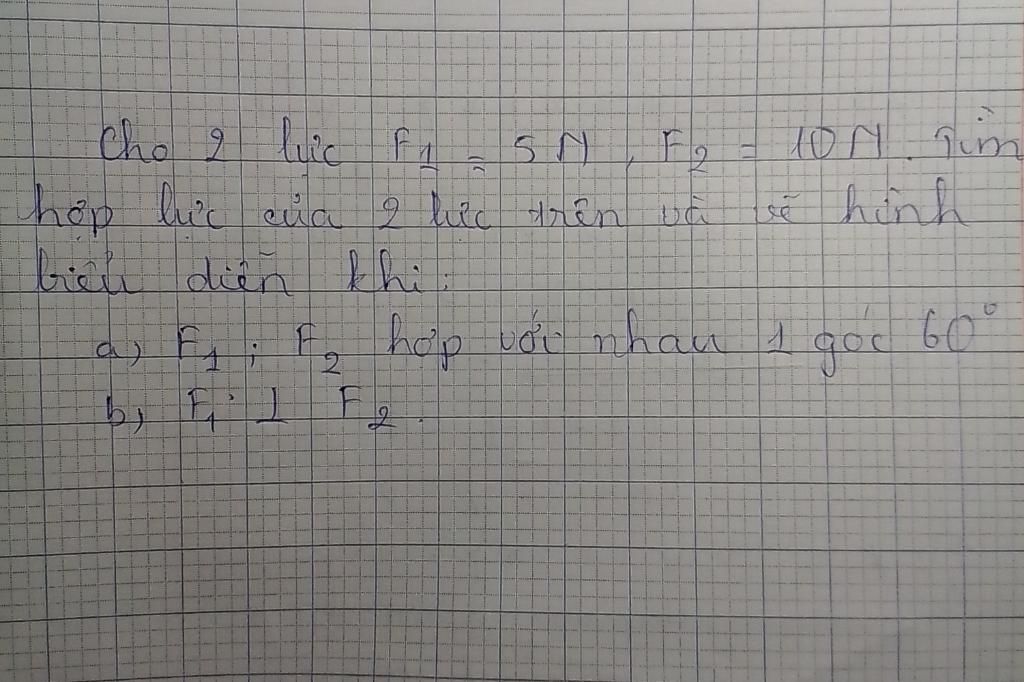 Cho 2 lực F1 = 5N, F2 = 10N. Tìm
hợp lực của 2 lực trên và vẽ hình
biểu diễn khi:
a, F1; F2 hợp với nhau 1 góc 60°
b, F1 ⊥ F2.